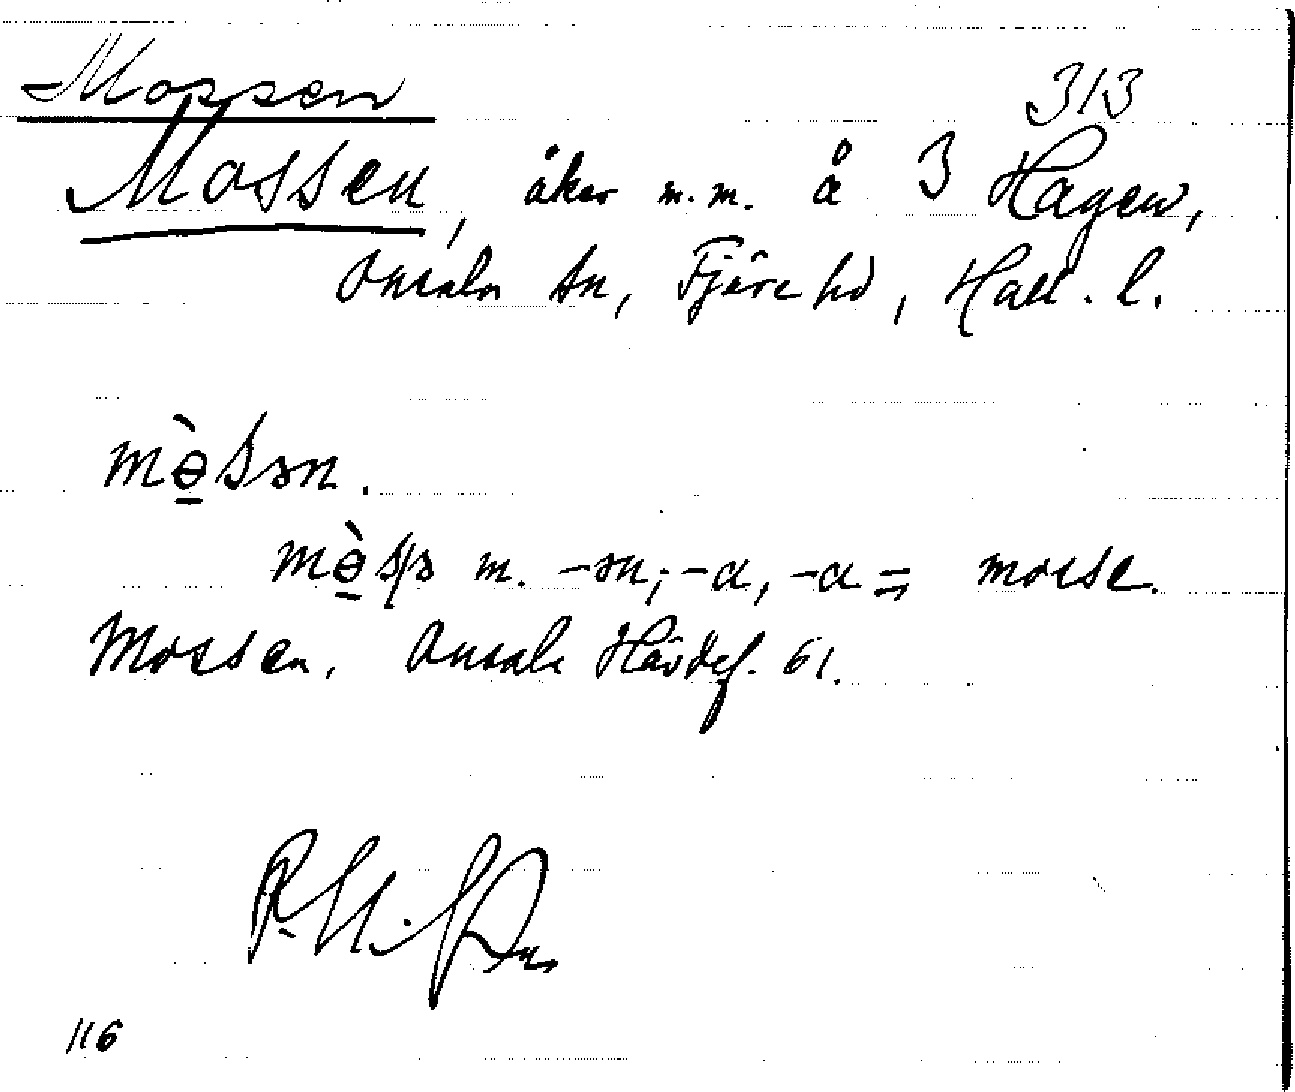 Mossen 313
Mossen, åker m.m. å 3 Hagen,
Onsala sn, Fjäre hd, Hall. l.
mɵ̀ssən.
mɵ̀sə m. -ən; -a, -a = mosse.
Mossen. Onsala Hävdef. 61.
116